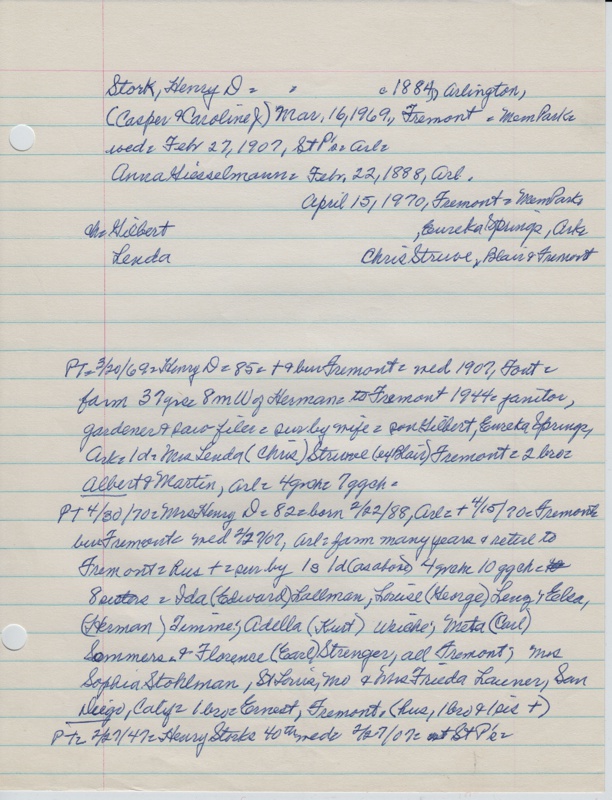 Stork, Henry D = " = 1884, Arlington,
(Casper & Caroline J) Mar. 16, 1969, Fremont = Mem Park =
wed = Febr 27, 1907, St P's = Arl =
Anna Giesselmann = Febr. 22, 1888, Arl.
April 15, 1970, Fremont = Mem Park
ch = Gilbert , Eureka Springs, Ark
Lenda Chris Struve, Blair & Fremont
PT = 3/20/69 = Henry D = 85 = + & bur Fremont = wed 1907, Font =
farm 37 yrs = 8 m W of Herman = to Fremont 1944 = janitor,
gardener & saw filer = sur by wife = son Gilbert, Eureka Springs,
Ark = 1 d = Mrs Lenda (Chris) Struve (of Blair) Fremont = 2 bro =
Albert & Martin, Arl = 4 grch = 7 ggch =
PT 4/30/70 = Mrs Henry D = 82 = born 2/22/88, Arl = + 4/15/70 = Fremont =
bur Fremont = wed 2/27/07, Arl = farm many years & retire to
Fremont = Hus + = sur by 1 s 1 d (as above) 4 grch 10 ggch =
8 sisters = Ida (Edward) Lallman, Louise (George) Lenz; Eelsa,
(Herman) Timme; Adella (Kurt) Weiche; Meta (Carl)
Sommers & Florence (Earl) Strenger, all Fremont; Mrs
Sophia Stohlman, St Louis, Mo & Mrs Frieda Launer, San
Diego, Caly = 1 bro = Ernest, Fremont. (Hus, 1 bro & 1 sis +)
PT = 2/27/47 = Henry Storks 40th wed = 2/27/07 = at St P's =